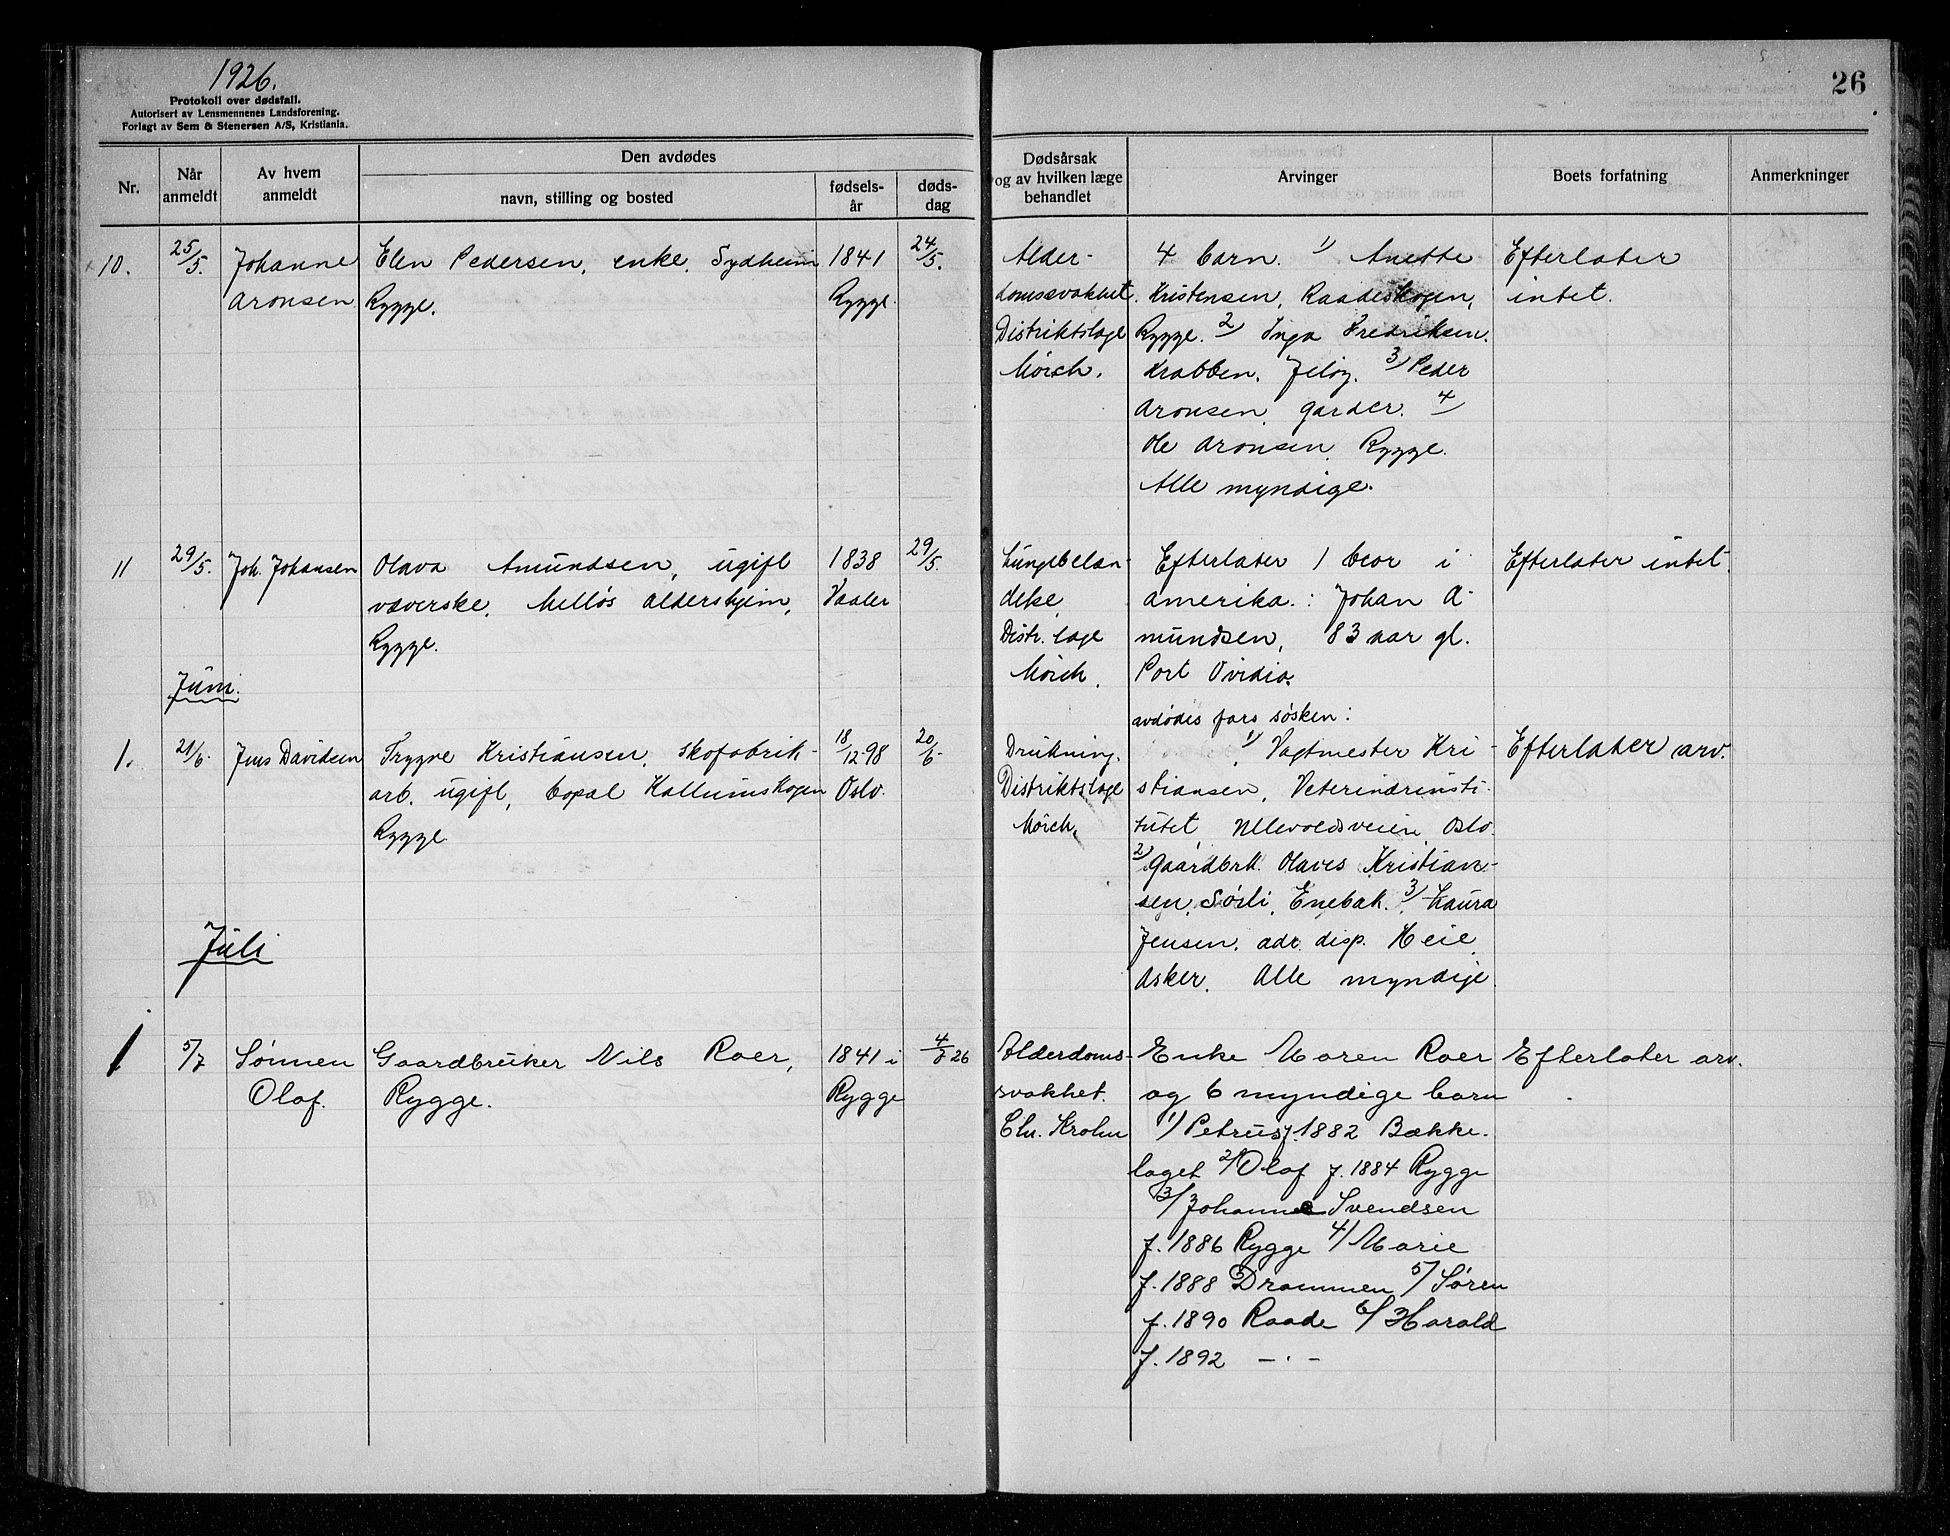 1926.
Protokoll over dødsfall.
Autorisert av Lensmennenes Landsforening.
Forlagt av Sem & Stenersen A/S, Kristiania.
26
Nr.
Når anmeldt
Av hvem anmeldt
Den avdødes
navn, stilling og bosted
fødsels-år
døds-dag
Dødsårsak og av hvilken læge behandlet
Arvinger
Boets forfatning
Anmerkninger
10.
25/5.
Johanne
Aronsen
Elen Pedersen, enke, Sydheim
Rygge.
1841
Rygge.
24/5.
Alder-
domssvakhet.
Distriktslæge
Mørch.
4 barn. 1/ Anette
Kristensen, Raadeskogen,
Rygge. 2/ Inga Fredriksen.
Krabben, Jeløy. 3/ Peder
Aronsen, Garder. 4/
Ole Aronsen, Rygge.
Alle myndige.
Efterlater
intet.
11
29/5.
Joh. Johansen
Olava Amundsen, ugift
væverske, Melløs aldershjem,
Rygge.
1838
Vaaler
29/5.
Lungebetæn-
delse,
Distr. læge
Mørch.
Efterlater 1 bror i
Amerika.: Johan A-
mundsen, 83 aar gl.
Port Ovidio.
Efterlater intet.
Juni.
1.
21/6.
Jens Davidsen
Trygve Kristiansen, skofabrik-
arb. ugift, bopæl Kallumskogen
Rygge
18/12-98
Oslo.
20/6-
Drukning.
Distriktslæge
Mørch.
avdødes fars søsken:
1/ Vagtmester Kri-
stiansen, Veterinærinsti-
tutet Ullevoldsveien Oslo.
2/ Gaardbrk. Olaves Kristian-
sen, Sørli, Enebak. 3/ Laura
Jensen, adr. disp. Heie
Asker. Alle myndige
Efterlater arv.
Juli
1
5/7
Sønnen
Olaf.
Gaardbruker Nils Roer,
Rygge.
1841 i
Rygge
4/7 26
Alderdoms-
svakhet.
Chr. Krohn
Enke Maren Roer
og 6 myndige barn
1) Petrus f. 1882 Bække-
laget 2/ Olaf f. 1884 Rygge
3/ Johanne Svendsen
f. 1886 Rygge 4/ Marie
f. 1888 Drammen 5/ Søren
f. 1890 Raade 6/ Harald
f. 1892 – · –
Efterlater arv.